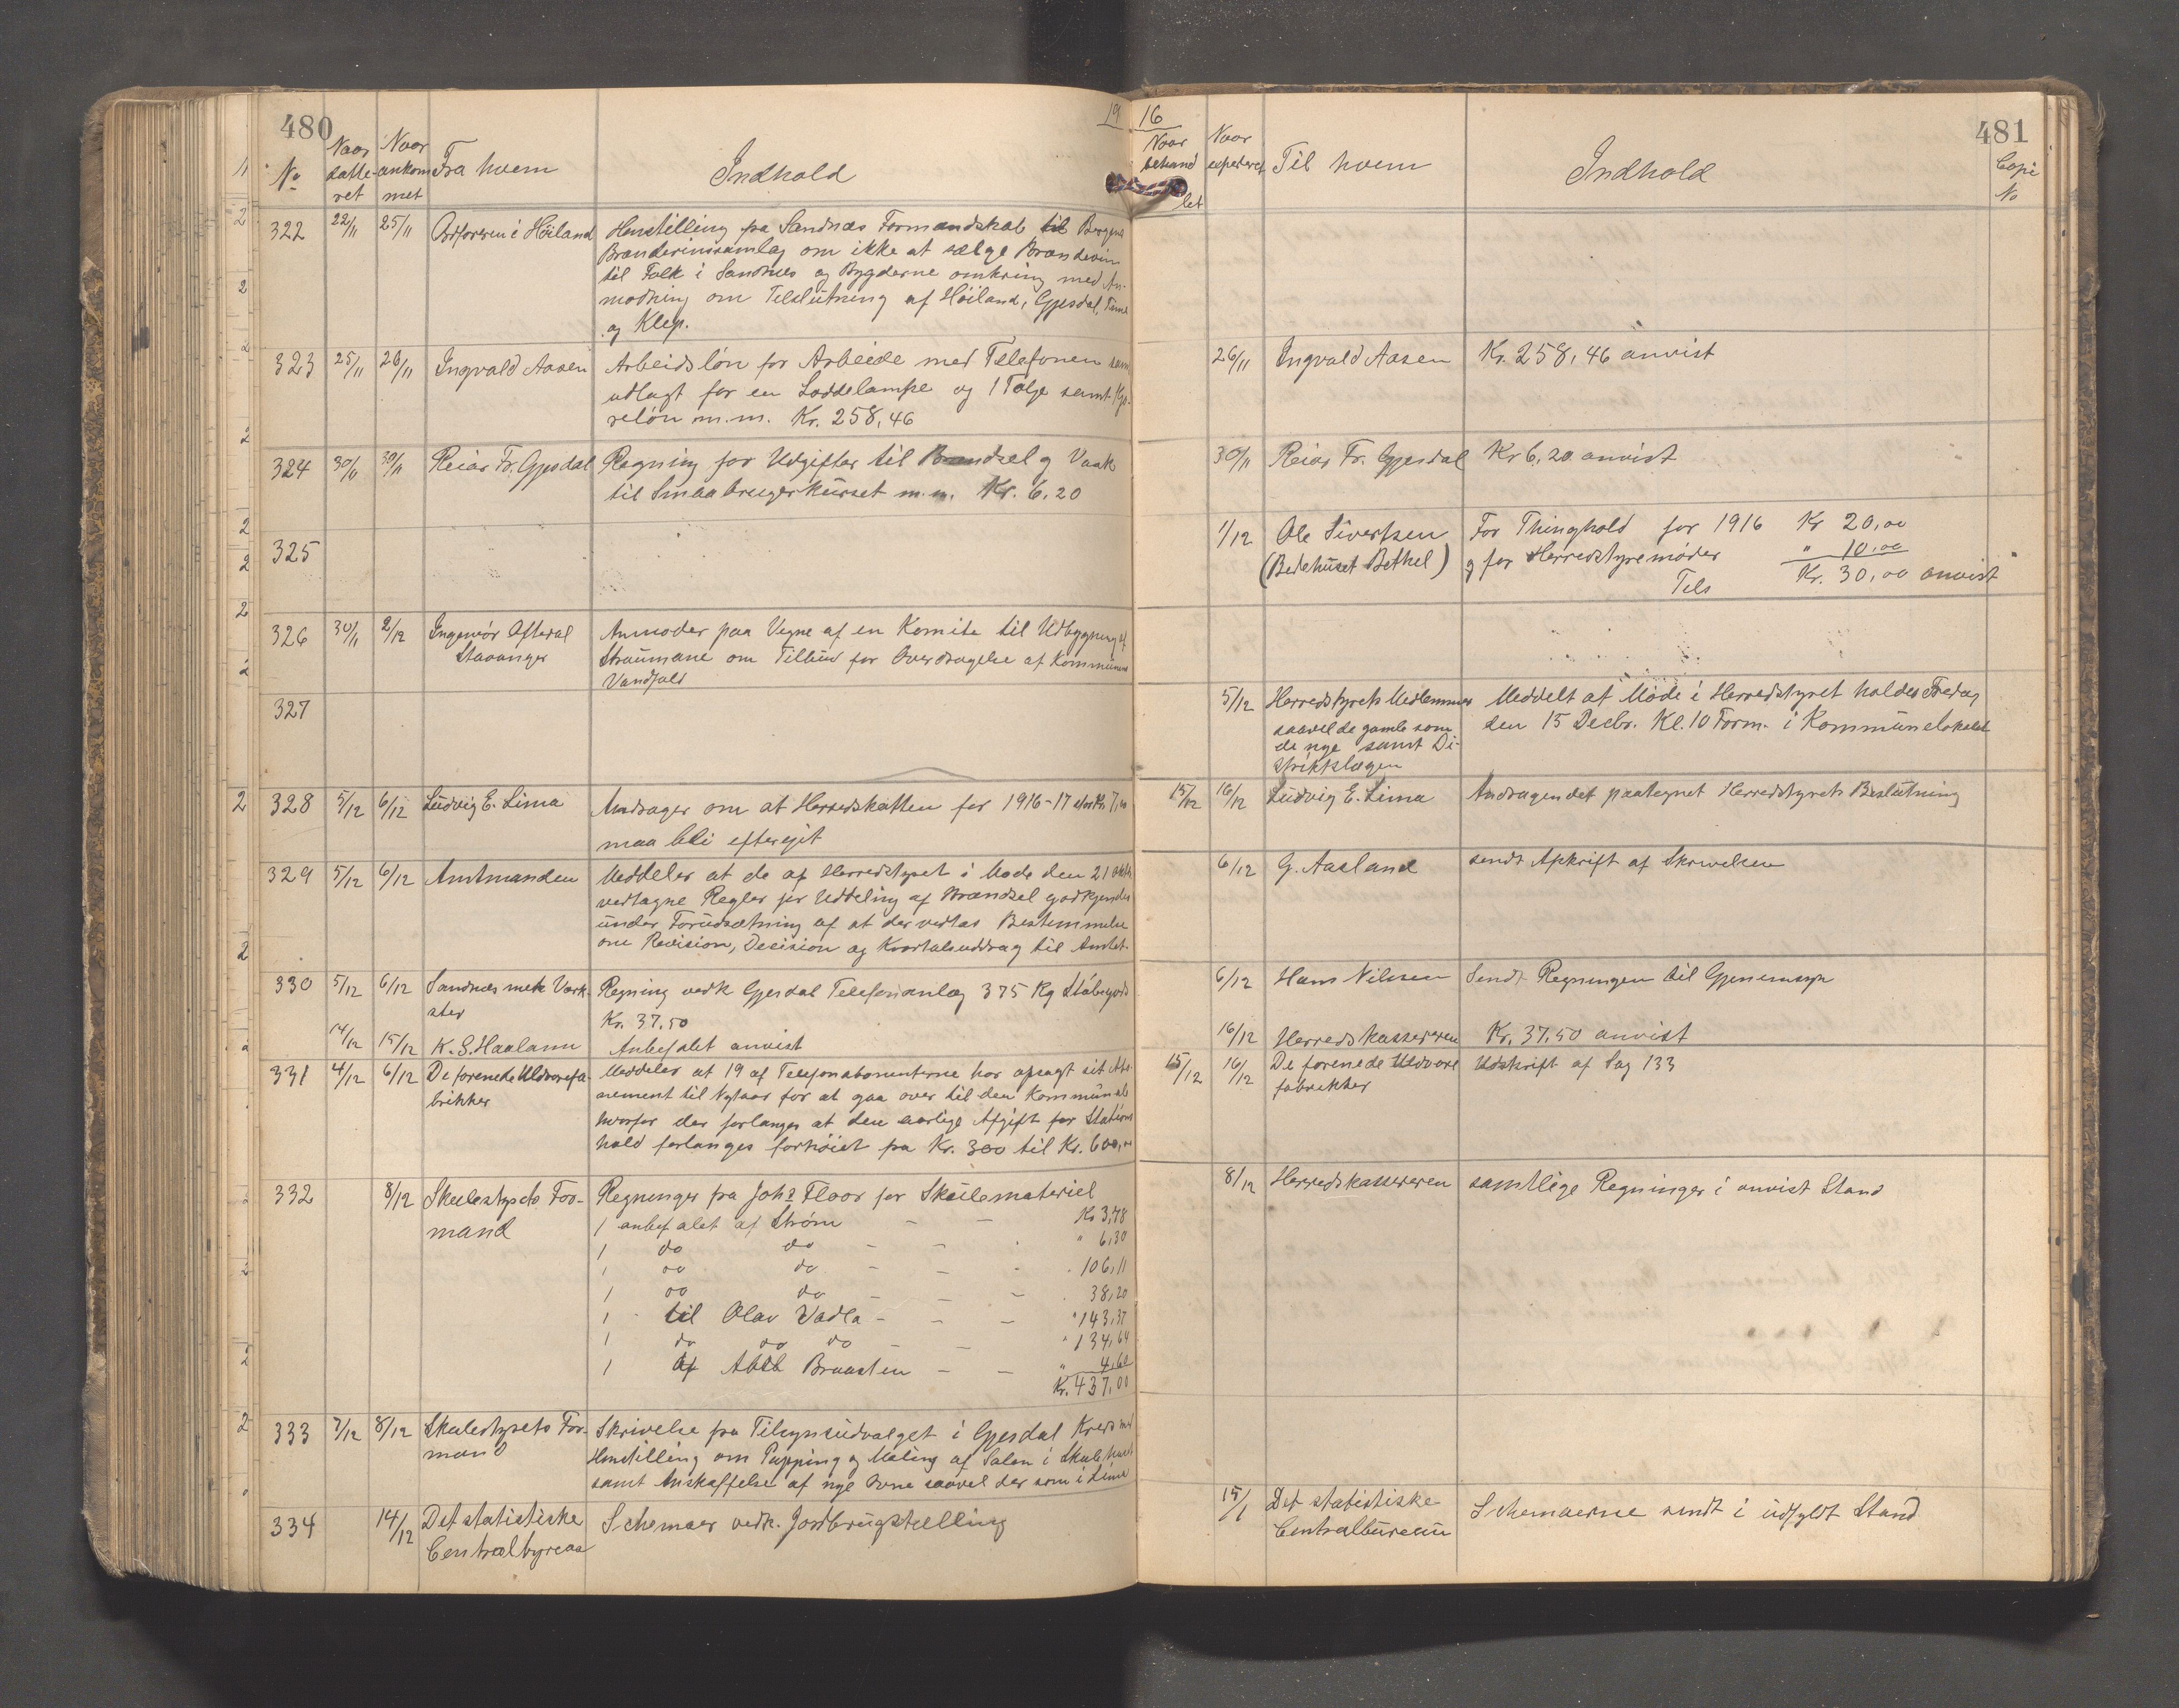 480
19
No
Naar datteret
Naar ankommet
Fra hvem
Indhold
322 22/11 25/11 Ordføreren i Höiland
Henstilling fra Sandnæs Formandskab til Bergens
Brændevinssamlag om ikke at sælge Brændevin
til Folk i Sandnes og Bygderne omkring med An-
modning om Tilslutning af Höiland, Gjesdal, Time
og Klep.
323 25/11 26/11 Ingvald Aasen
Arbeidslön for Arbeide med Telefonen sam
udlagt for en Loddelampe og 1 Talje samt Kjö-
relön m.m. Kr. 258,46
324 30/11 30/11 Reiar Fr. Gjesdal
Regning for Udgifter til Brændsel og Vask
til Smaabrugerkurset m.m. Kr. 6,20
325
326 30/11 2/12 Ingeniör Aftedal
Stavanger
Anmoder paa Vegne af en Komite til Udbygning af
Straumane om Tilbud for Overdragelse af Kommunens
Vandfald
327
328 5/12 6/12 Ludvig E. Lima
Andrager om at Herredskatten for 1916-17 stor Kr 7,00
maa bli eftergit
329 5/12 6/12 Amtmanden
Meddeler at de af Herredstyret i Møde den 21 Oktb
vedtagne Regler for Uddeling af Brændsel godkjendes
under Forudsætning af at der vedtas Bestemmelse
om Revision, Decision og Kvartalsuddrag til Amtet
330 5/12 6/12 Sandnæs mek Værk-
sted
Regning vedk Gjesdal Telefonanlæg 375 Kg Støbegods
Kr. 37,50
14/12 15/12 K. S. Haaland
Anbefalet anvist
331 4/12 6/12 De forenede Uldvarefa-
brikker
Meddeler at 19 af Telefonabonenterne har opsagt sit Abo-
nement til Nytaar for at gaa over til den Kommunale
hvorfor der forlanges at den aarlige Afgift for Stations
hold forlanges forhöiet fra Kr. 300 til Kr. 600,00
332 8/12 Skulestyrets For-
mand
Regninger fra Johs Floor for Skulemateriel
1 anbefalet af Strøm - - Kr 3,78
1 do do - - " 6,30
1 do do - - " 106,11
1 do do - - " 38,20
1 til Olav Vadla - - - " 143,37
1 do do do - - " 134,64
1 af Abel Braasten - - " 4,60
Kr. 437,00
333 7/12 8/12 Skulestyrets For-
mand
Skrivelse fra Tilsynsudvalget i Gjesdal Kreds med
Henstilling om Papping og Maling af Salen i Skulehuset
samt Anskaffelse af nye Ovne saavel der som i Lima
334 14/12 Det statistiske
Centralbyreaa
Schemaer vedk. Jordbrugstælling
16
481
Naar behandlet
Naar expederet
Til hvem
Indhold
Copi No
26/11 Ingvald Aasen Kr. 258,46 anvist
30/11 Reiar Fr. Gjesdal Kr 6,20 anvist
1/12 Ole Sivertsen For Thinghold for 1916 Kr 20,00
(Bedehuset Bethel) og for Herredstyremöder " 10,00
Tels Kr. 30,00 anvist
5/12 Herredstyrets Medlemmer
saavel de gamle som
de nye samt Di-
striktslægen
Meddelt at Møde i Herredstyret holdes Fredag
den 15 Decbr. Kl. 10 Form. i Kommunelokalet
15/12 16/12 Ludvig E. Lima Andragendet paategnet Herredstyrets Beslutning
6/12 G. Aasland sendt Afskrift af Skrivelsen
6/12 Hans Nilsen Sendt Regningen til Gjennemsyn
16/12 Herredskassereren Kr. 37,50 anvist
15/12 16/12 De forenede Uldvare
fabrikker
Udskrift af Sag 133
8/12 Herredskassereren samtlige Regninger i anvist Stand
15/1 Det statistiske
Centralbureau
Schemaerne sendt i udfyldt Stand